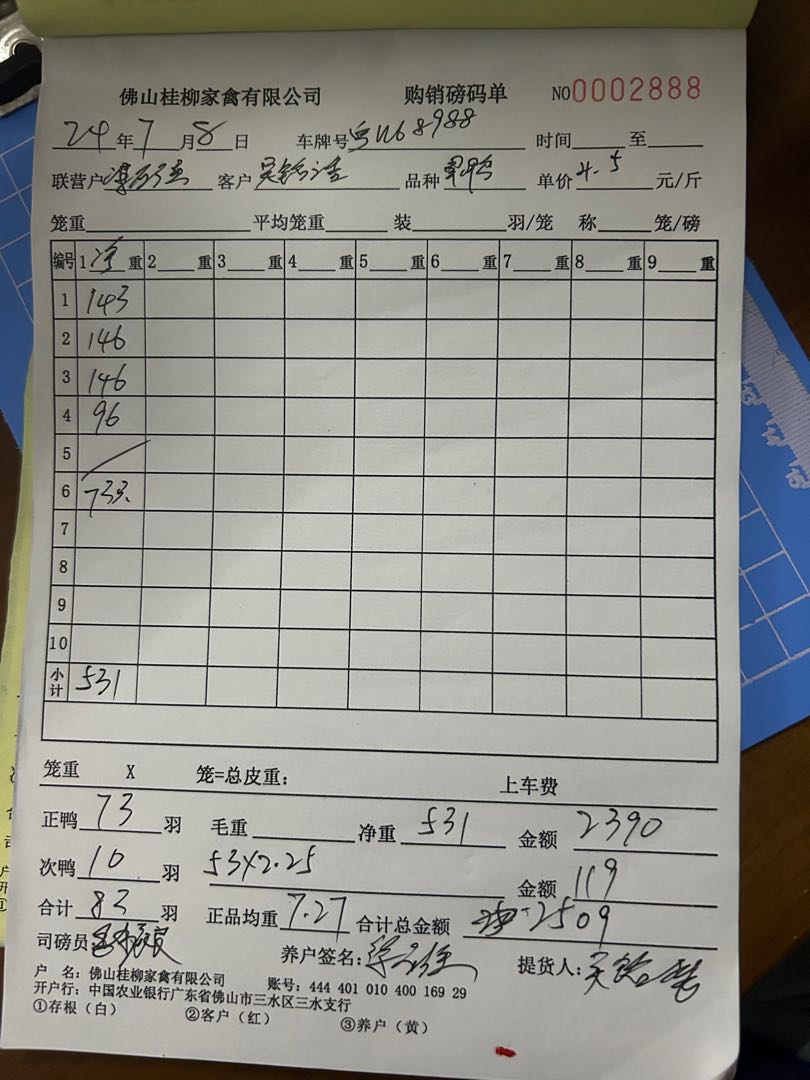 佛山桂柳家禽有限公司 购销磅码单 NO0002888
24年7月8日 车牌号粤W68988 时间 至
联营户 客户 品种 单价4.5元/斤
笼重 平均笼重 装 羽/笼 称 笼/磅
编号 1净重 2 重 3 重 4 重 5 重 6 重 7 重 8 重 9 重
1 143
2 146
3 146
4 96
5
6 733
7
8
9
10
小计 531
笼重 X 笼=总皮重: 上车费
正鸭73羽 毛重 净重531 金额2390
次鸭10羽 53×2.25 金额119
合计83羽 正品均重7.27 合计总金额 2509
司磅员 养户签名: 提货人:
户 名: 佛山桂柳家禽有限公司 账号: 444 401 010 400 169 29
开户行: 中国农业银行广东省佛山市三水区三水支行
①存根(白) ②客户(红) ③养户(黄)